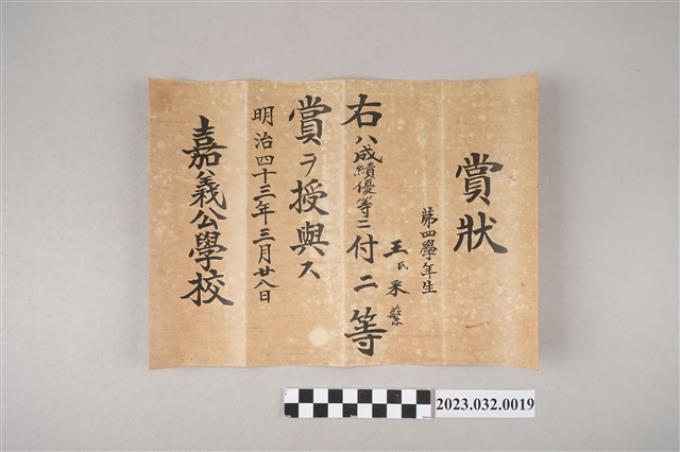 賞狀
第四學年生
王氏釆蘩
右ハ成績優等ニ付二等
賞ヲ授與ス
明治四十三年三月廿八日
嘉義公學校
2023.032.0019